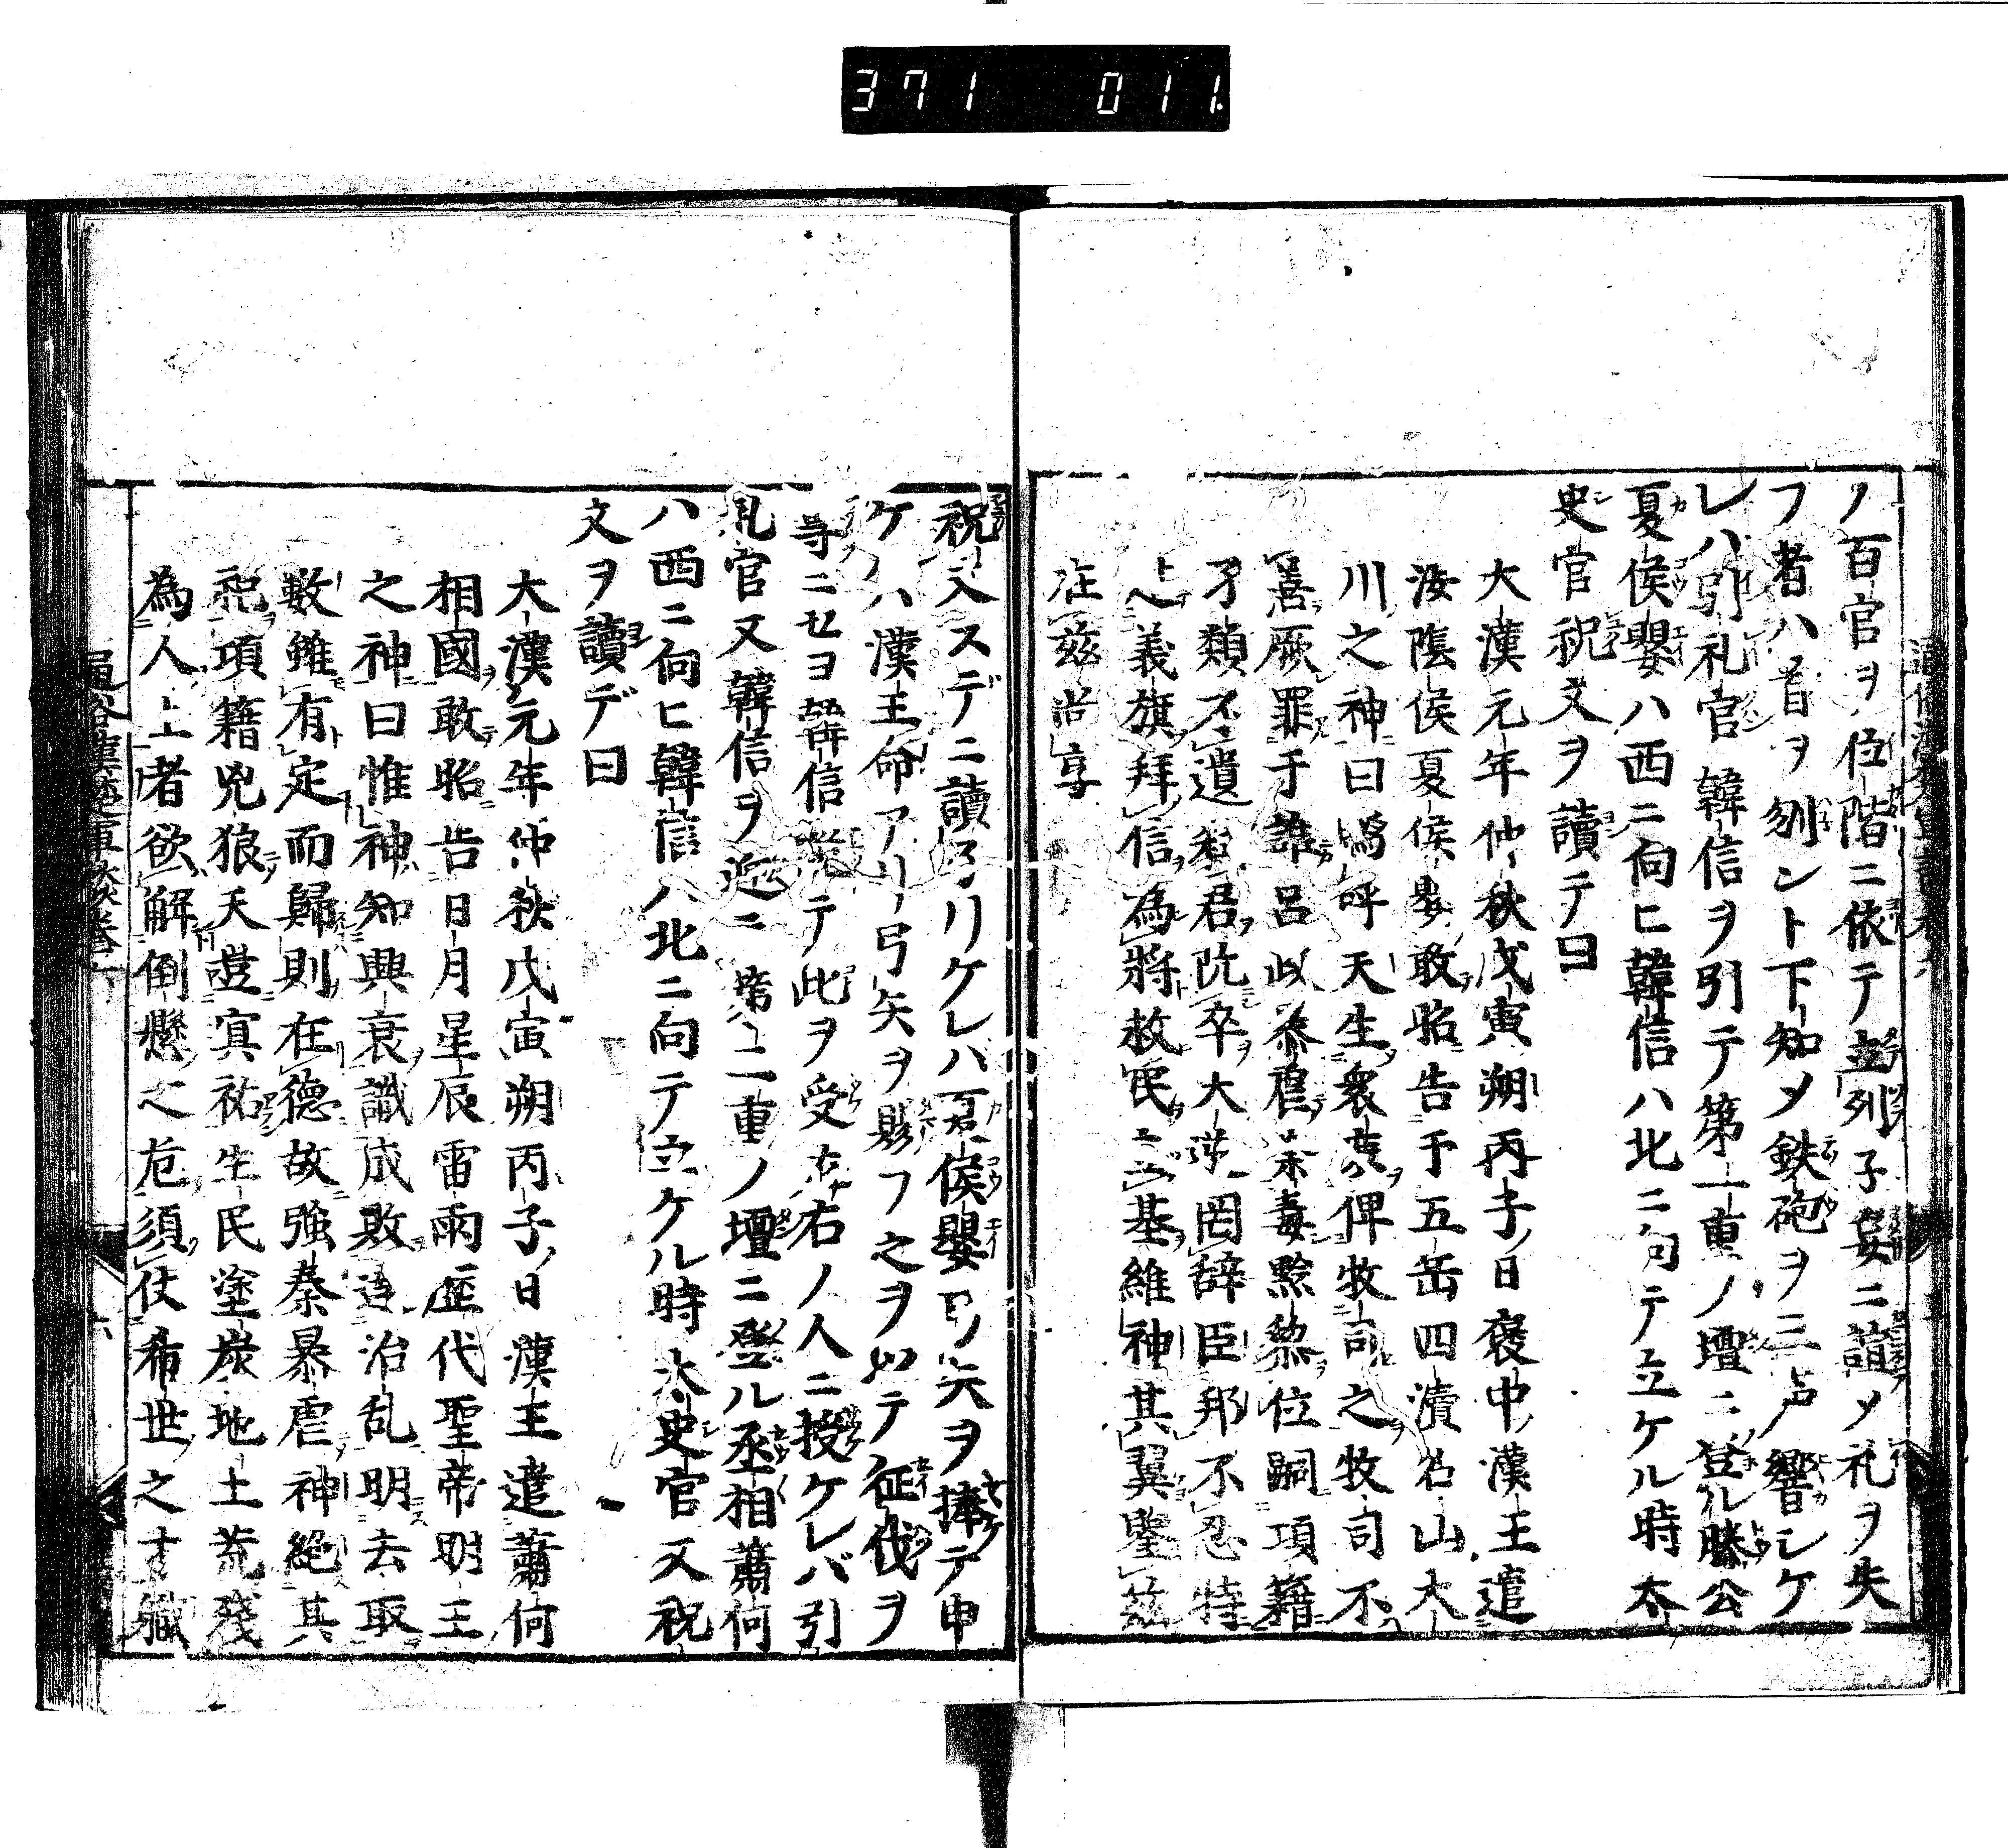 371 011
ノ百官ヲ位階ニ依テ並列子妄ニ諠メ礼ヲ失
フ者ハ首ヲ刎ント下知メ鉄砲ヲ三声響シケ
レハ引礼官韓信ヲ引テ第一重ノ壇ニ登ル滕公
夏侯嬰ハ西ニ向ヒ韓信ハ北ニ向テ立ケル時太
史官祝文ヲ讀テ曰
大漢元年仲秋戊寅朔丙子日褒中漢王遣
汝陰侯夏侯嬰敢昭告于五岳四瀆名山大
川之神曰嗚呼天生衆庶俾牧司之牧司不
善厥罪于誰呂政恭虐荼毒黔黎位嗣項籍
才類不遺君阬卒大逆罔辞臣邦不忍特
上義旗拜信為將救民基維神其翼鑒茲
在茲尚享
祝文スデニ讀ヲハリケレハ夏侯嬰弓矢ヲ捧テ申
ケルハ漢王命アリ弓矢ヲ賜フ之ヲ以テ征伐ヲ
専ニセヨ韓信跪テ此ヲ受左右ノ人ニ授ケレバ引
礼官又韓信ヲ迎ニ第二重ノ壇ニ登ル丞相蕭何
ハ西ニ向ヒ韓信ハ北ニ向テ立ケル時太史官又祝
文ヲ讀デ曰
大漢元年仲秋戊寅朔丙子日漢王遣蕭何
相國敢昭告日月星辰雷雨歴代聖帝明王
之神曰惟神知興衰識成敗達治乱明去取
數雖有定而歸則在德故強秦暴虐神絶其
祀項籍兇狼天豈寘祐生民塗炭地土荒殘
為人上者欲解倒懸之危須仗希世之才職